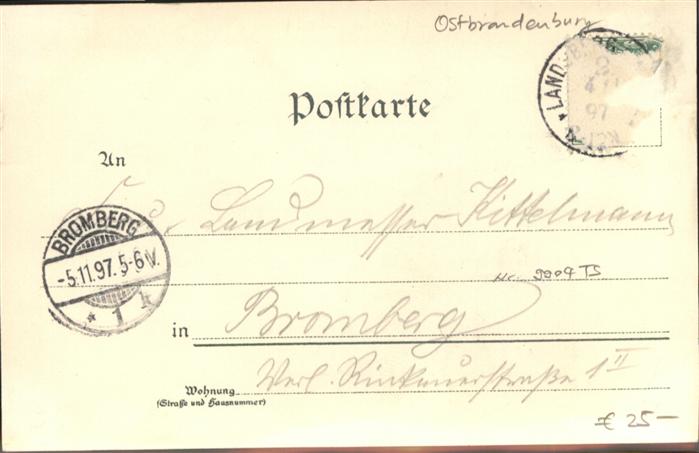 Ostbrandenburg
LANDSBERG
4 11
97
Postkarte
An
Landmesser Kittelmann
BROMBERG
-5.11.97. 5-6N.
* 1 k
Nr. 9904 TS
in Bromberg
Verl. Rinkauerstraße 1 II
Wohnung
(Straße und Hausnummer)
€ 25—